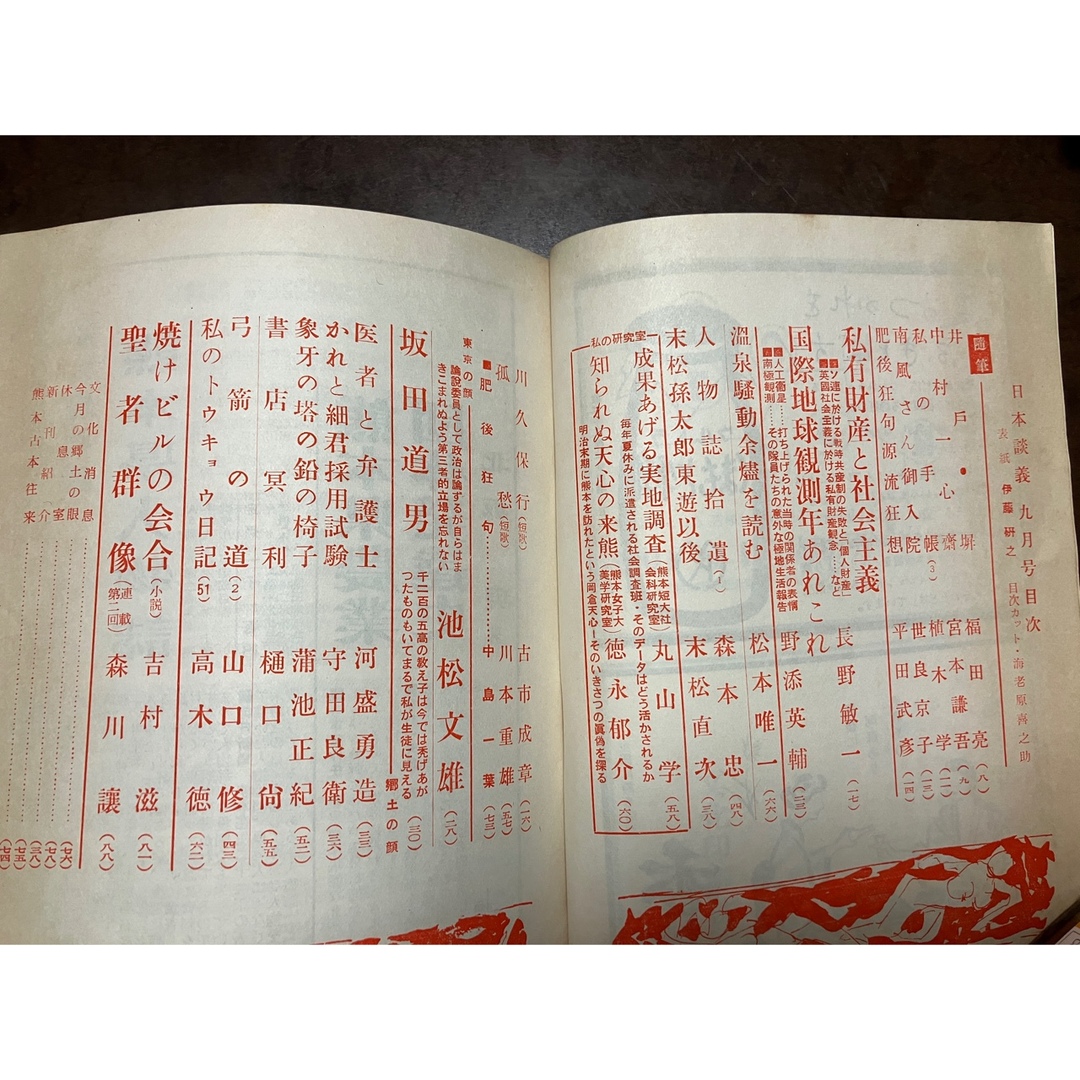 日本談義 九月号目次
表紙 伊藤研之 目次カット・海老原喜之助
随筆
井戸・塀 福田亮 (八)
中村一心齋 宮本謙吾 (九)
私の手帳(3) 植木学 (一一)
南風さん御入院 世良京子 (一三)
肥後狂句源流狂想 平田武彦 (一四)
私有財産と社会主義 長野敏一 (一七)
ソ連に於ける戦時共産制の失敗と「個人財産」
英国社会主義に於ける私有財産観念……など
国際地球観測年あれこれ 野添英輔 (二三)
人工衛星……打ち上げられた当時の関係者の表情
南極観測……その院員たちの意外な極地生活報告
温泉騒動余燼を読む 松本唯一 (六六)
人物誌拾遺(一) 森本忠 (四八)
末松孫太郎東遊以後 末松直次 (三八)
私の研究室
成果あげる実地調査(熊本短大社会科研究室) 丸山学 (五八)
毎年夏休みに派遣される社会調査班・そのデータはどう活かされるか
知られぬ天心の来熊(熊本女子大美学研究室) 徳永郁介 (六〇)
明治末期に熊本を訪れたという岡倉天心ーそのいきさつの眞偽を探る
川久保行(短歌) 古市成章 (一六)
孤愁(短歌) 川本重雄 (五七)
■肥後狂句 中島一葉 (七三)
東京の顔
論説委員として政治は論ずるが自らはま
きこまれぬよう第三者的立場を忘れない
池松文雄 (二八)
坂田道男
千二百の五高の教え子は今では禿げあが
つたものもいてまるで私が生徒に見える
郷土の顔 (三〇)
医者と弁護士 河盛勇造 (三三)
かれと細君採用試験 守田良衛 (三六)
象牙の塔の鉛の椅子 蒲池正紀 (五二)
書店冥利 樋口尚 (五五)
弓箭の道(2) 山口修 (四三)
私のトウキョウ日記(51) 高木徳 (六二)
焼けビルの会合(小説) 吉村滋 (八一)
聖者群像(連載第二回) 森川譲 (八八)
文化消息 (七六)
今月の郷土の眼 (七八)
休憩室 (三八)
新刊紹介 (七五)
熊本古本往来 (七四)